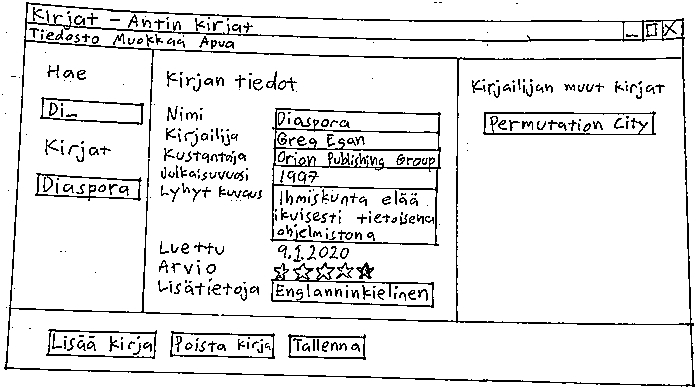 Kirjat - Antin kirjat
Tiedosto Muokkaa Apua
Hae
Di_
Kirjat
Diaspora
Kirjan tiedot
Nimi Diaspora
Kirjailija Greg Egan
Kustantaja Orion Publishing Group
Julkaisuvuosi 1997
Lyhyt kuvaus Ihmiskunta elää
ikuisesti tietoisena
ohjelmistona
Luettu 9.1.2020
Arvio ☆☆☆☆★
Lisätietoja Englanninkielinen
Kirjailijan muut kirjat
Permutation City
Lisää kirja Poista kirja Tallenna